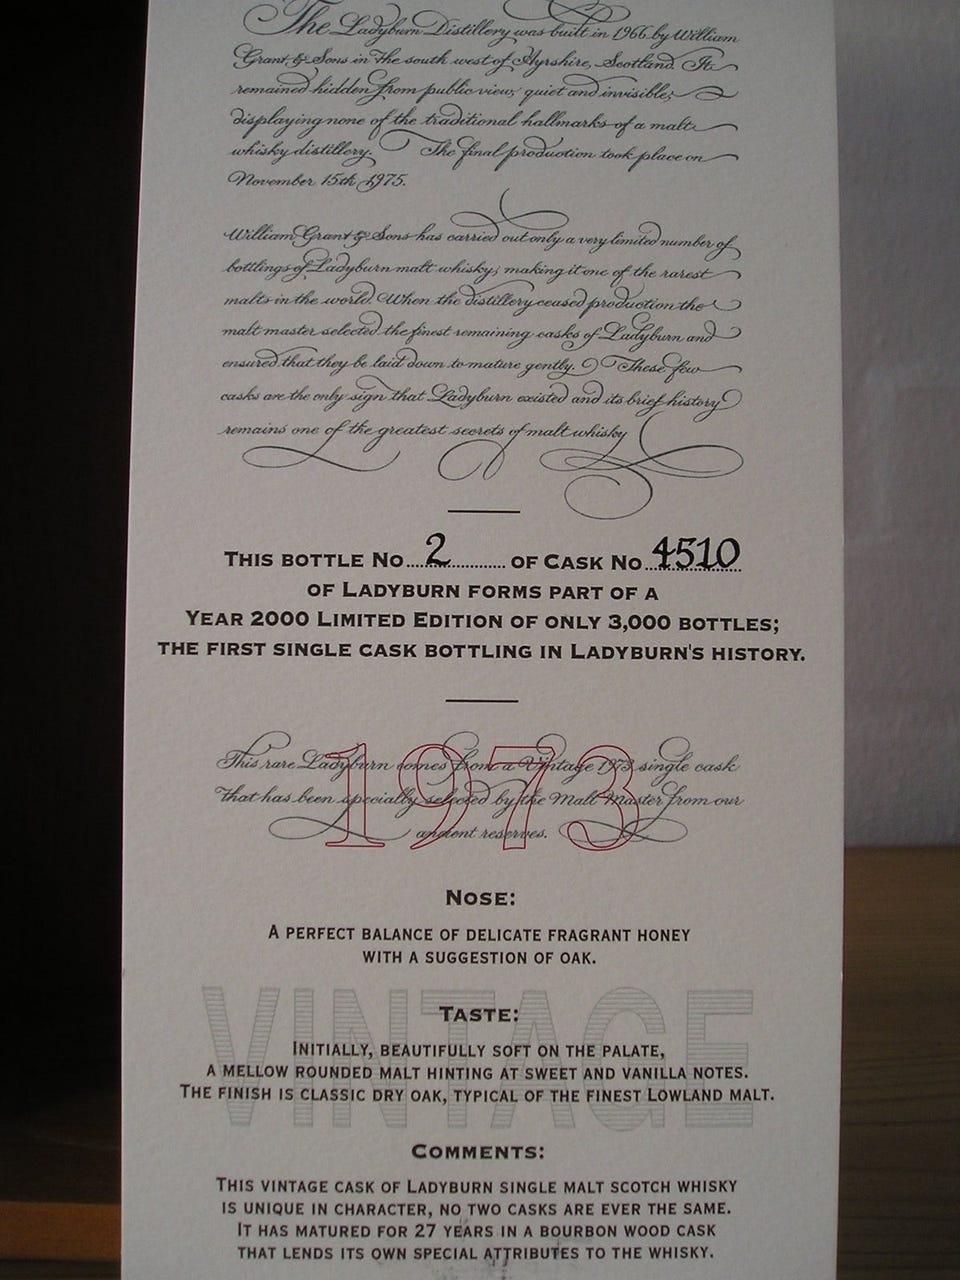 The Ladyburn Distillery was built in 1966 by William
Grant & Sons in the south west of Ayrshire, Scotland. It
remained hidden from public view; quiet and invisible;
displaying none of the traditional hallmarks of a malt
whisky distillery. The final production took place on
November 15th 1975.
William Grant & Sons has carried out only a very limited number of
bottlings of Ladyburn malt whisky; making it one of the rarest
malts in the world. When the distillery ceased production the
malt master selected the finest remaining casks of Ladyburn and
ensured that they be laid down to mature gently. These few
casks are the only sign that Ladyburn existed and its brief history
remains one of the greatest secrets of malt whisky
THIS BOTTLE NO 2 OF CASK NO 4510
OF LADYBURN FORMS PART OF A
YEAR 2000 LIMITED EDITION OF ONLY 3,000 BOTTLES;
THE FIRST SINGLE CASK BOTTLING IN LADYBURN'S HISTORY.
1973
This rare Ladyburn comes from a Vintage 1973 single cask
that has been specially selected by the Malt Master from our
ancient reserves.
NOSE:
A PERFECT BALANCE OF DELICATE FRAGRANT HONEY
WITH A SUGGESTION OF OAK.
VINTAGE
TASTE:
INITIALLY, BEAUTIFULLY SOFT ON THE PALATE,
A MELLOW ROUNDED MALT HINTING AT SWEET AND VANILLA NOTES.
THE FINISH IS CLASSIC DRY OAK, TYPICAL OF THE FINEST LOWLAND MALT.
COMMENTS:
THIS VINTAGE CASK OF LADYBURN SINGLE MALT SCOTCH WHISKY
IS UNIQUE IN CHARACTER, NO TWO CASKS ARE EVER THE SAME.
IT HAS MATURED FOR 27 YEARS IN A BOURBON WOOD CASK
THAT LENDS ITS OWN SPECIAL ATTRIBUTES TO THE WHISKY.